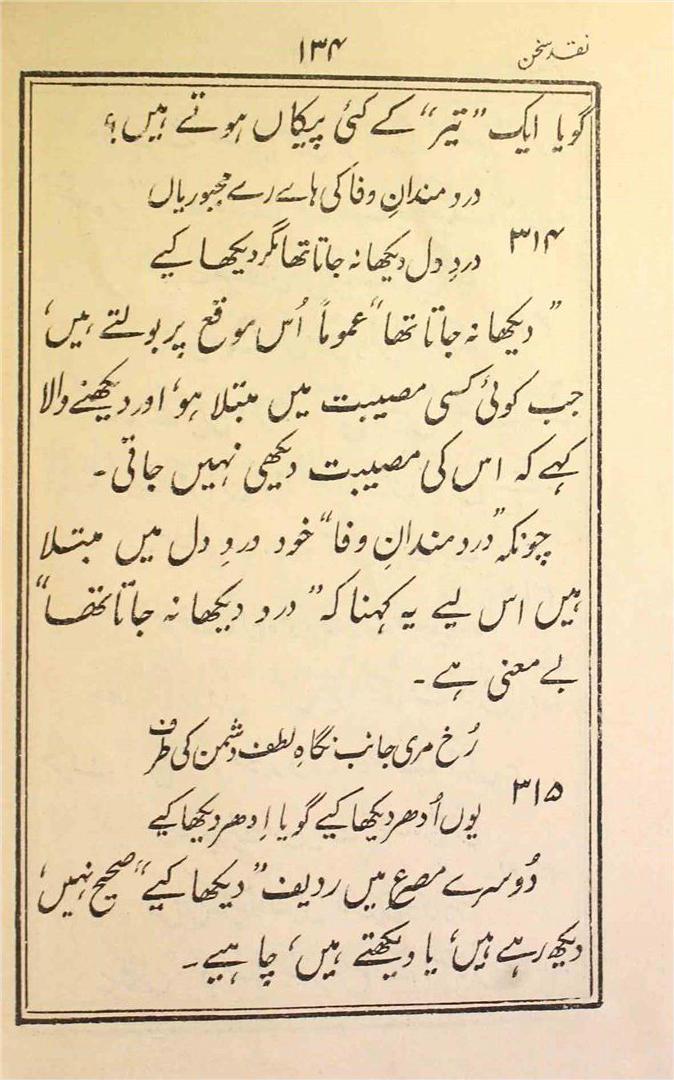 نقد سخن
۱۳۴
گویا ایک ”تیر“ کے کئی پیکاں ہوتے ہیں؟
درد مندانِ وفا کی ہاے رے مجبوریاں
۳۱۴
دردِ دل دیکھا نہ جاتا تھا مگر دیکھا کیے
”دیکھا نہ جاتا تھا“ عموماً اُس موقع پر بولتے ہیں،
جب کوئی کسی مصیبت میں مبتلا ہو، اور دیکھنے والا
کہے کہ اس کی مصیبت دیکھی نہیں جاتی۔
چونکہ ”درد مندانِ وفا“ خود دردِ دل میں مبتلا
ہیں اس لیے یہ کہنا کہ ”درد دیکھا نہ جاتا تھا“
بے معنی ہے۔
رُخ مری جانب نگاہِ لطف دشمن کی طرف
۳۱۵
یوں اُدھر دیکھا کیے گویا اِدھر دیکھا کیے
دُوسرے مصرع میں ردیف ”دیکھا کیے“ صحیح نہیں،
دیکھ رہے ہیں، یا دیکھتے ہیں، چاہیے۔